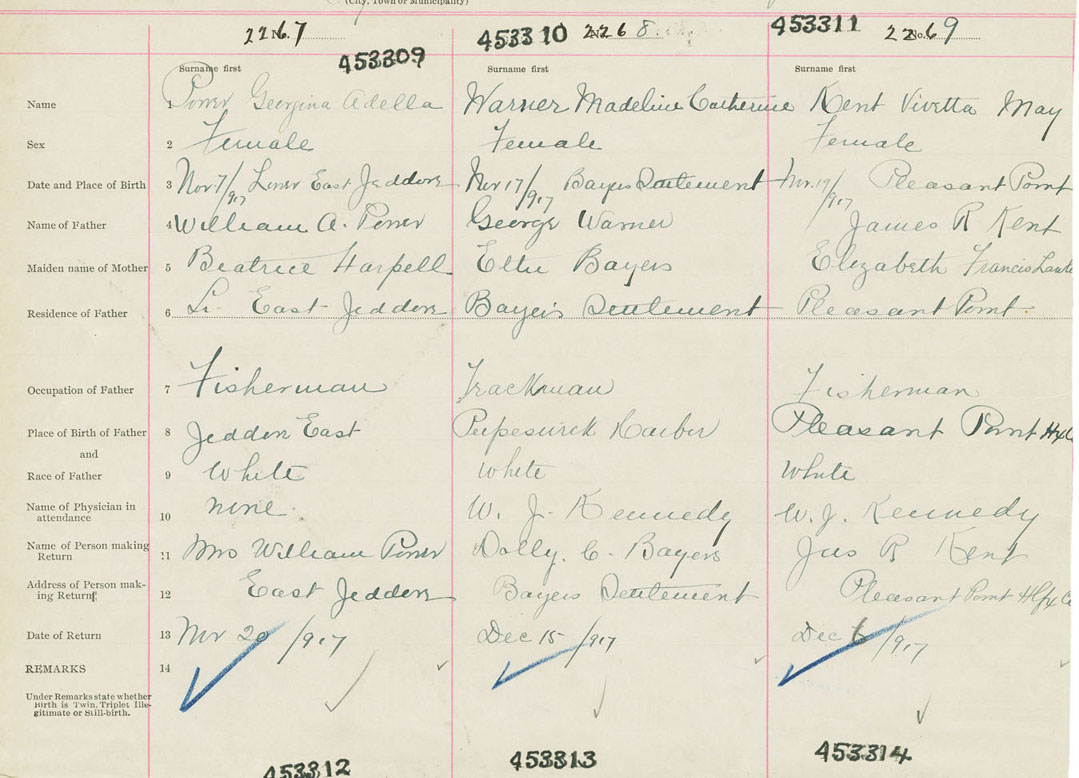 (City, Town or Municipality)
2267 453309 453310 No. 2268 453311 No. 2269
Surname first Surname first Surname first
Name 1 Power Georgina Adella Warner Madeline Catherine Kent Vivetta May
Sex 2 Female Female Female
Date and Place of Birth 3 Nov 7/917 Lower East Jeddore Nov 17/917 Bayers Settlement Nov. 19/917 Pleasant Point
Name of Father 4 William A. Power George Warner James R Kent
Maiden name of Mother 5 Beatrice Harpell Bayers Elizabeth Francis
Residence of Father 6 East Jeddore Bayers Settlement Pleasant Point
Occupation of Father 7 Fisherman Trackman Fisherman
Place of Birth of Father 8 Jeddore East Harbor Pleasant Point
and
Race of Father 9 White White White
Name of Physician in none W. J. Kennedy W. J. Kennedy
attendance 10
Name of Person making 11 Mrs William Power Dolly. C. Bayers Jas R Kent
Return
Address of Person mak- East Jeddore Bayers Settlement Pleasant Point Hfx Co
ing Return 12
Date of Return 13 Nov 20/917 Dec 15/917 Dec 6/917
REMARKS 14
Under Remarks state whether
Birth is Twin, Triplet Ille-
gitimate or Still-birth.
453312 453313 453314